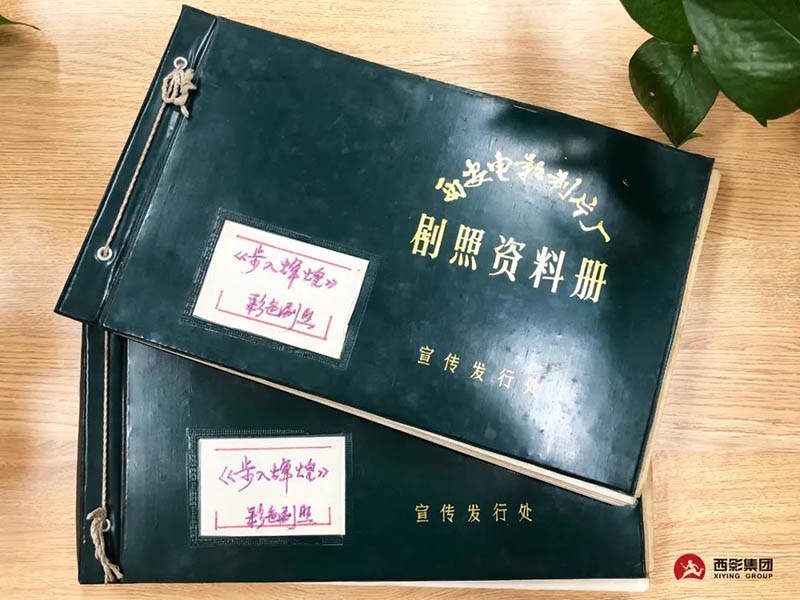 西安电影制片厂
剧照资料册
《步入辉煌》
彩色剧照
宣传发行处
《步入辉煌》
彩色剧照
宣传发行处
西影集团
XIYING GROUP